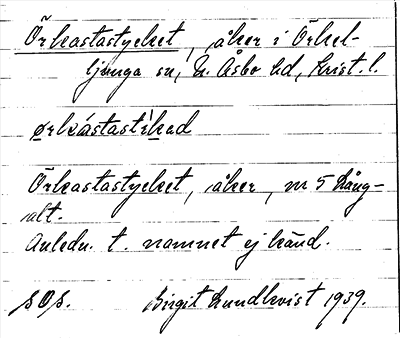 Örkastastycket, åker i Örkel-
ljunga sn, N. Åsbo hd, Krist. l.
ørkástastìkad
Örkastastycket, åker, nr 5 Lång-
alt.
Anledn. t. namnet ej känd.
Birgit Lundkvist 1939.